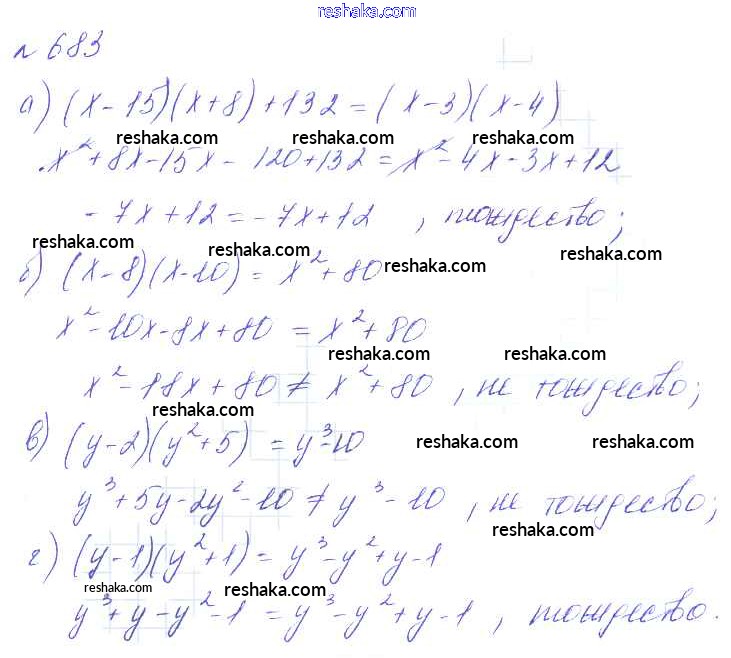 reshaka.com
№ 683
а) (x-15)(x+8)+132=(x-3)(x-4)
reshaka.com reshaka.com reshaka.com
x²+8x-15x-120+132=x²-4x-3x+12
-7x+12=-7x+12, тождество;
reshaka.com reshaka.com reshaka.com reshaka.com
б) (x-8)(x-10)=x²+80
x²-10x-8x+80=x²+80
reshaka.com reshaka.com
x²-18x+80≠x²+80, не тождество;
reshaka.com
в) (y-2)(y²+5)=y³-10
reshaka.com reshaka.com
y³+5y-2y²-10≠y³-10, не тождество;
reshaka.com
г) (y-1)(y²+1)=y³-y²+y-1
reshaka.com reshaka.com reshaka.com
y³+y-y²-1=y³-y²+y-1, тождество.